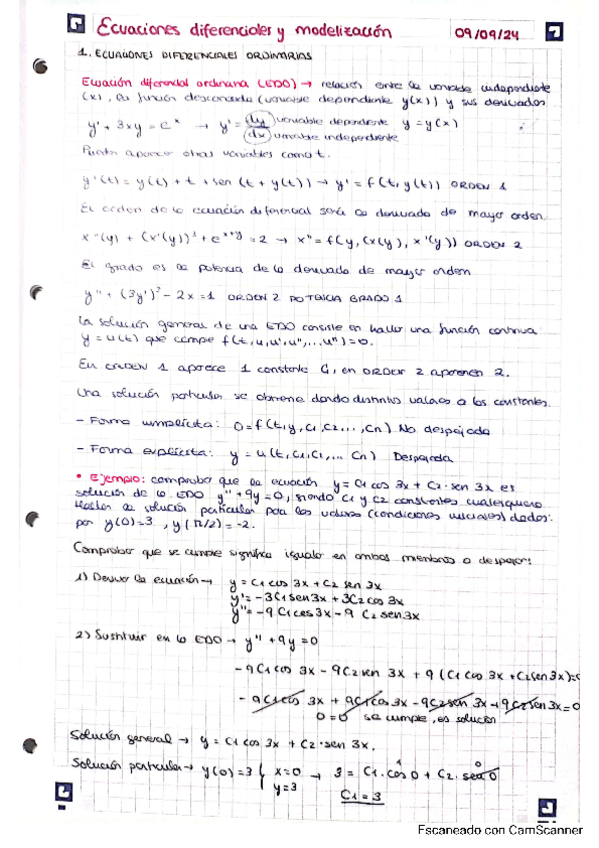 Ecuaciones diferenciales y modelización 09/09/24
1. ECUACIONES DIFERENCIALES ORDINARIAS
Ecuación diferencial ordinaria (EDO) → relación entre la variable independiente
(x), su función desconocida (variable dependiente y(x)) y sus derivadas.
y' + 3xy = e^x → y' = dy/dx variable dependiente y = y(x)
variable independiente
Pueden aparecer otras variables como t.
y'(t) = y(t) + t + sen (t + y(t)) → y' = f(t, y(t)) ORDEN 1
El orden de la ecuación diferencial será la derivada de mayor orden.
x''(y) + (x'(y))³ + e^(x+y) = 2 → x'' = f(y, (x(y), x'(y)) ORDEN 2
El grado es la potencia de la derivada de mayor orden
y'' + (3y')² - 2x = 1 ORDEN 2 POTENCIA GRADO 1
La solución general de una EDO consiste en hallar una función continua
y = u(t) que cumpe f(t, u, u', u'', ... uⁿ) = 0.
En ORDEN 1 aparece 1 constante C, en ORDEN 2 aparecen 2.
Una solución particular se obtiene dando distintos valores a las constantes.
- Forma implícita: 0 = f(t, y, C1, C2..., Cn) No despejada
- Forma explícita: y = u(t, C1, C2, ... Cn) Despejada
• Ejemplo: comprobar que la ecuación y = C1 cos 3x + C2 · sen 3x es
solución de la EDO y'' + 9y = 0, siendo C1 y C2 constantes cualesquiera.
Hallar la solución particular para los valores (condiciones iniciales) dados:
por y(0) = 3, y(π/2) = -2.
Comprobar que se cumple significa igualar en ambos miembros o despejar:
1) Derivar la ecuación → y = C1 cos 3x + C2 sen 3x
y' = -3C1 sen 3x + 3C2 cos 3x
y'' = -9 C1 cos 3x - 9 C2 sen 3x
2) Sustituir en la EDO → y'' + 9y = 0
-9C1 cos 3x - 9C2 sen 3x + 9 (C1 cos 3x + C2 sen 3x) = 0
-9C1 cos 3x + 9C1 cos 3x - 9C2 sen 3x + 9C2 sen 3x = 0
0 = 0 se cumple, es solución
Solución general → y = C1 cos 3x + C2 · sen 3x.
Solución particular → y(0) = 3 { x = 0 → 3 = C1 · cos 0 + C2 · sen 0
y = 3
C1 = 3
Escaneado con CamScanner